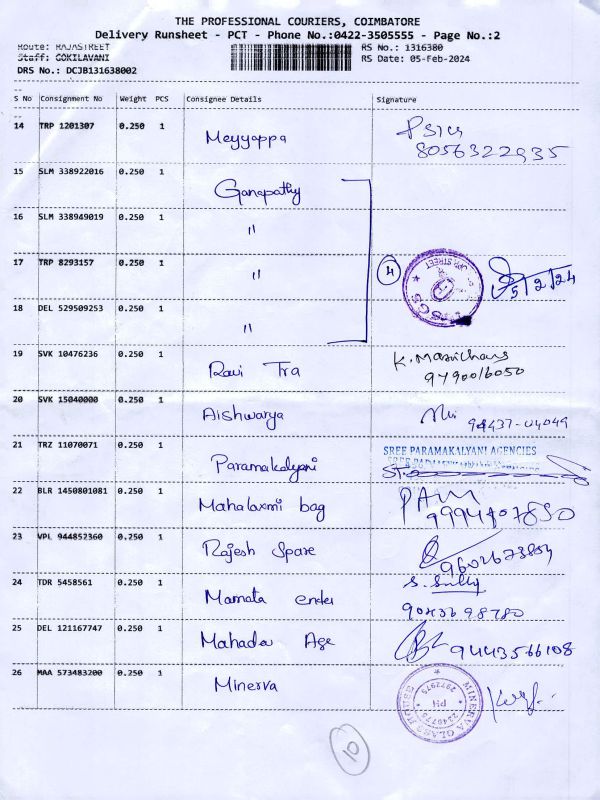 THE PROFESSIONAL COURIERS, COIMBATORE
Delivery Runsheet - PCT - Phone No.:0422-3505555 - Page No.:2
Route: RAJASTREET RS No.: 1316380
Staff: GOKILAVANI RS Date: 05-Feb-2024
DRS No.: DCJB131638002
S No Consignment No Weight PCS Consignee Details Signature
14 TRP 1201307 0.250 1 Meyyappa
8056322935
15 SLM 338922016 0.250 1 Ganapathy
16 SLM 338949019 0.250 1 "
17 TRP 8293157 0.250 1 " 4 5/2/24
18 DEL 529509253 0.250 1 "
19 SVK 10476236 0.250 1 Ravi Tra
9790016050
20 SVK 15040000 0.250 1 Aishwarya 94437-04049
21 TRZ 11070071 0.250 1 Paramakalyani SREE PARAMAKALYANI AGENCIES
22 BLR 1450801081 0.250 1 Mahalaxmi bag
23 VPL 944852360 0.250 1 Rajesh Spare
24 TDR 5458561 0.250 1 Mamata
25 DEL 121167747 0.250 1 Mahadev Age 9443566108
26 MAA 573483200 0.250 1 Minerva
MINERVA GLASS HOUSE
PH
2972975
10